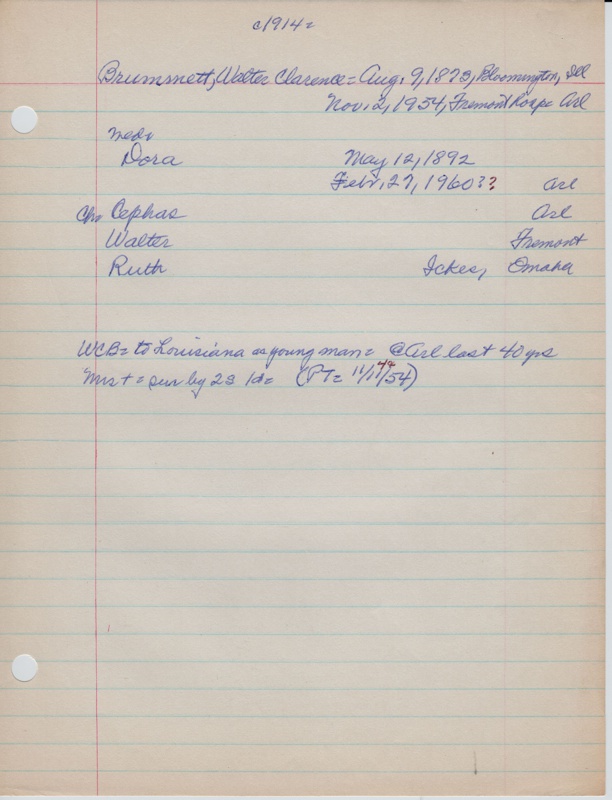 c1914=
Brummett, Walter Clarence= Aug. 9, 1873, Bloomington, Ill
Nov. 2, 1954, Fremont Hosp= Arl
Med.
Dora May 12, 1892
Febr. 27, 1960?? Arl
Ch= Cephas Arl
Walter Fremont
Ruth Ickes, Omaha
WCB= to Louisiana as young man= @ Arl last 40 yrs
Mrs + = sur by 2s 1d= (PT= 11/11/54)